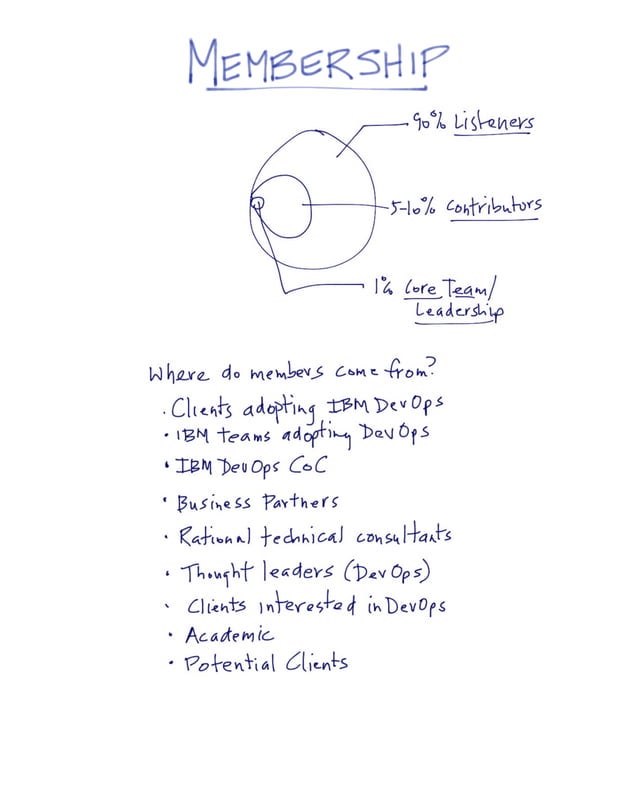 MEMBERSHIP
90% Listeners
5-10% Contributors
1% Core Team/
Leadership
Where do members come from?
· Clients adopting IBM DevOps
• IBM teams adopting DevOps
• IBM DevOps CoC
• Business Partners
• Rational technical consultants
• Thought leaders (DevOps)
• Clients interested in DevOps
• Academic
• Potential Clients